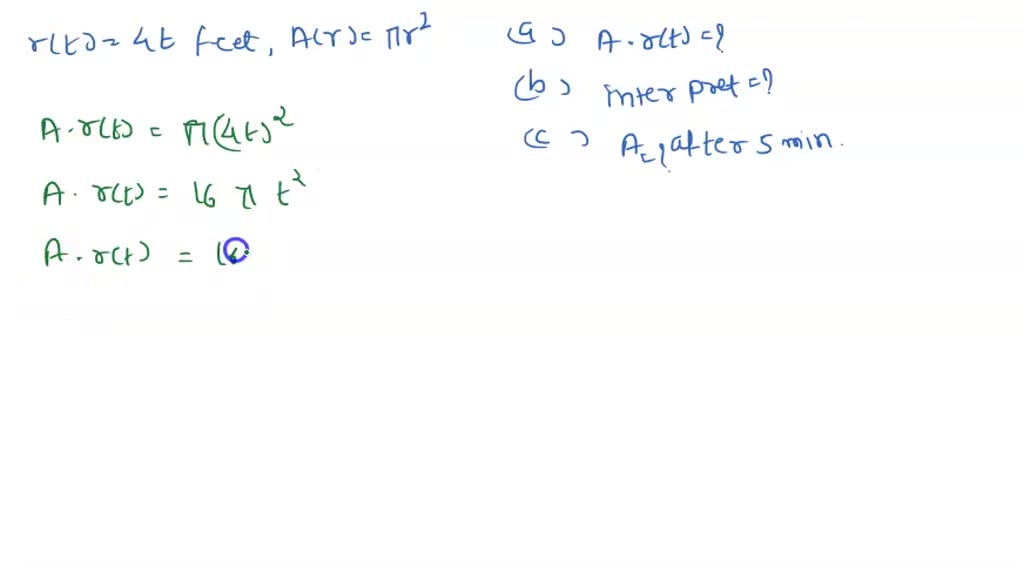 r(t) = 4t feet, A(r) = πr²
(a) A·r(t) = ?
(b) inter pret = ?
(c) A = ? after 5 min.
A·r(t) = π(4t)²
A·r(t) = 16 π t²
A·r(t) = 16